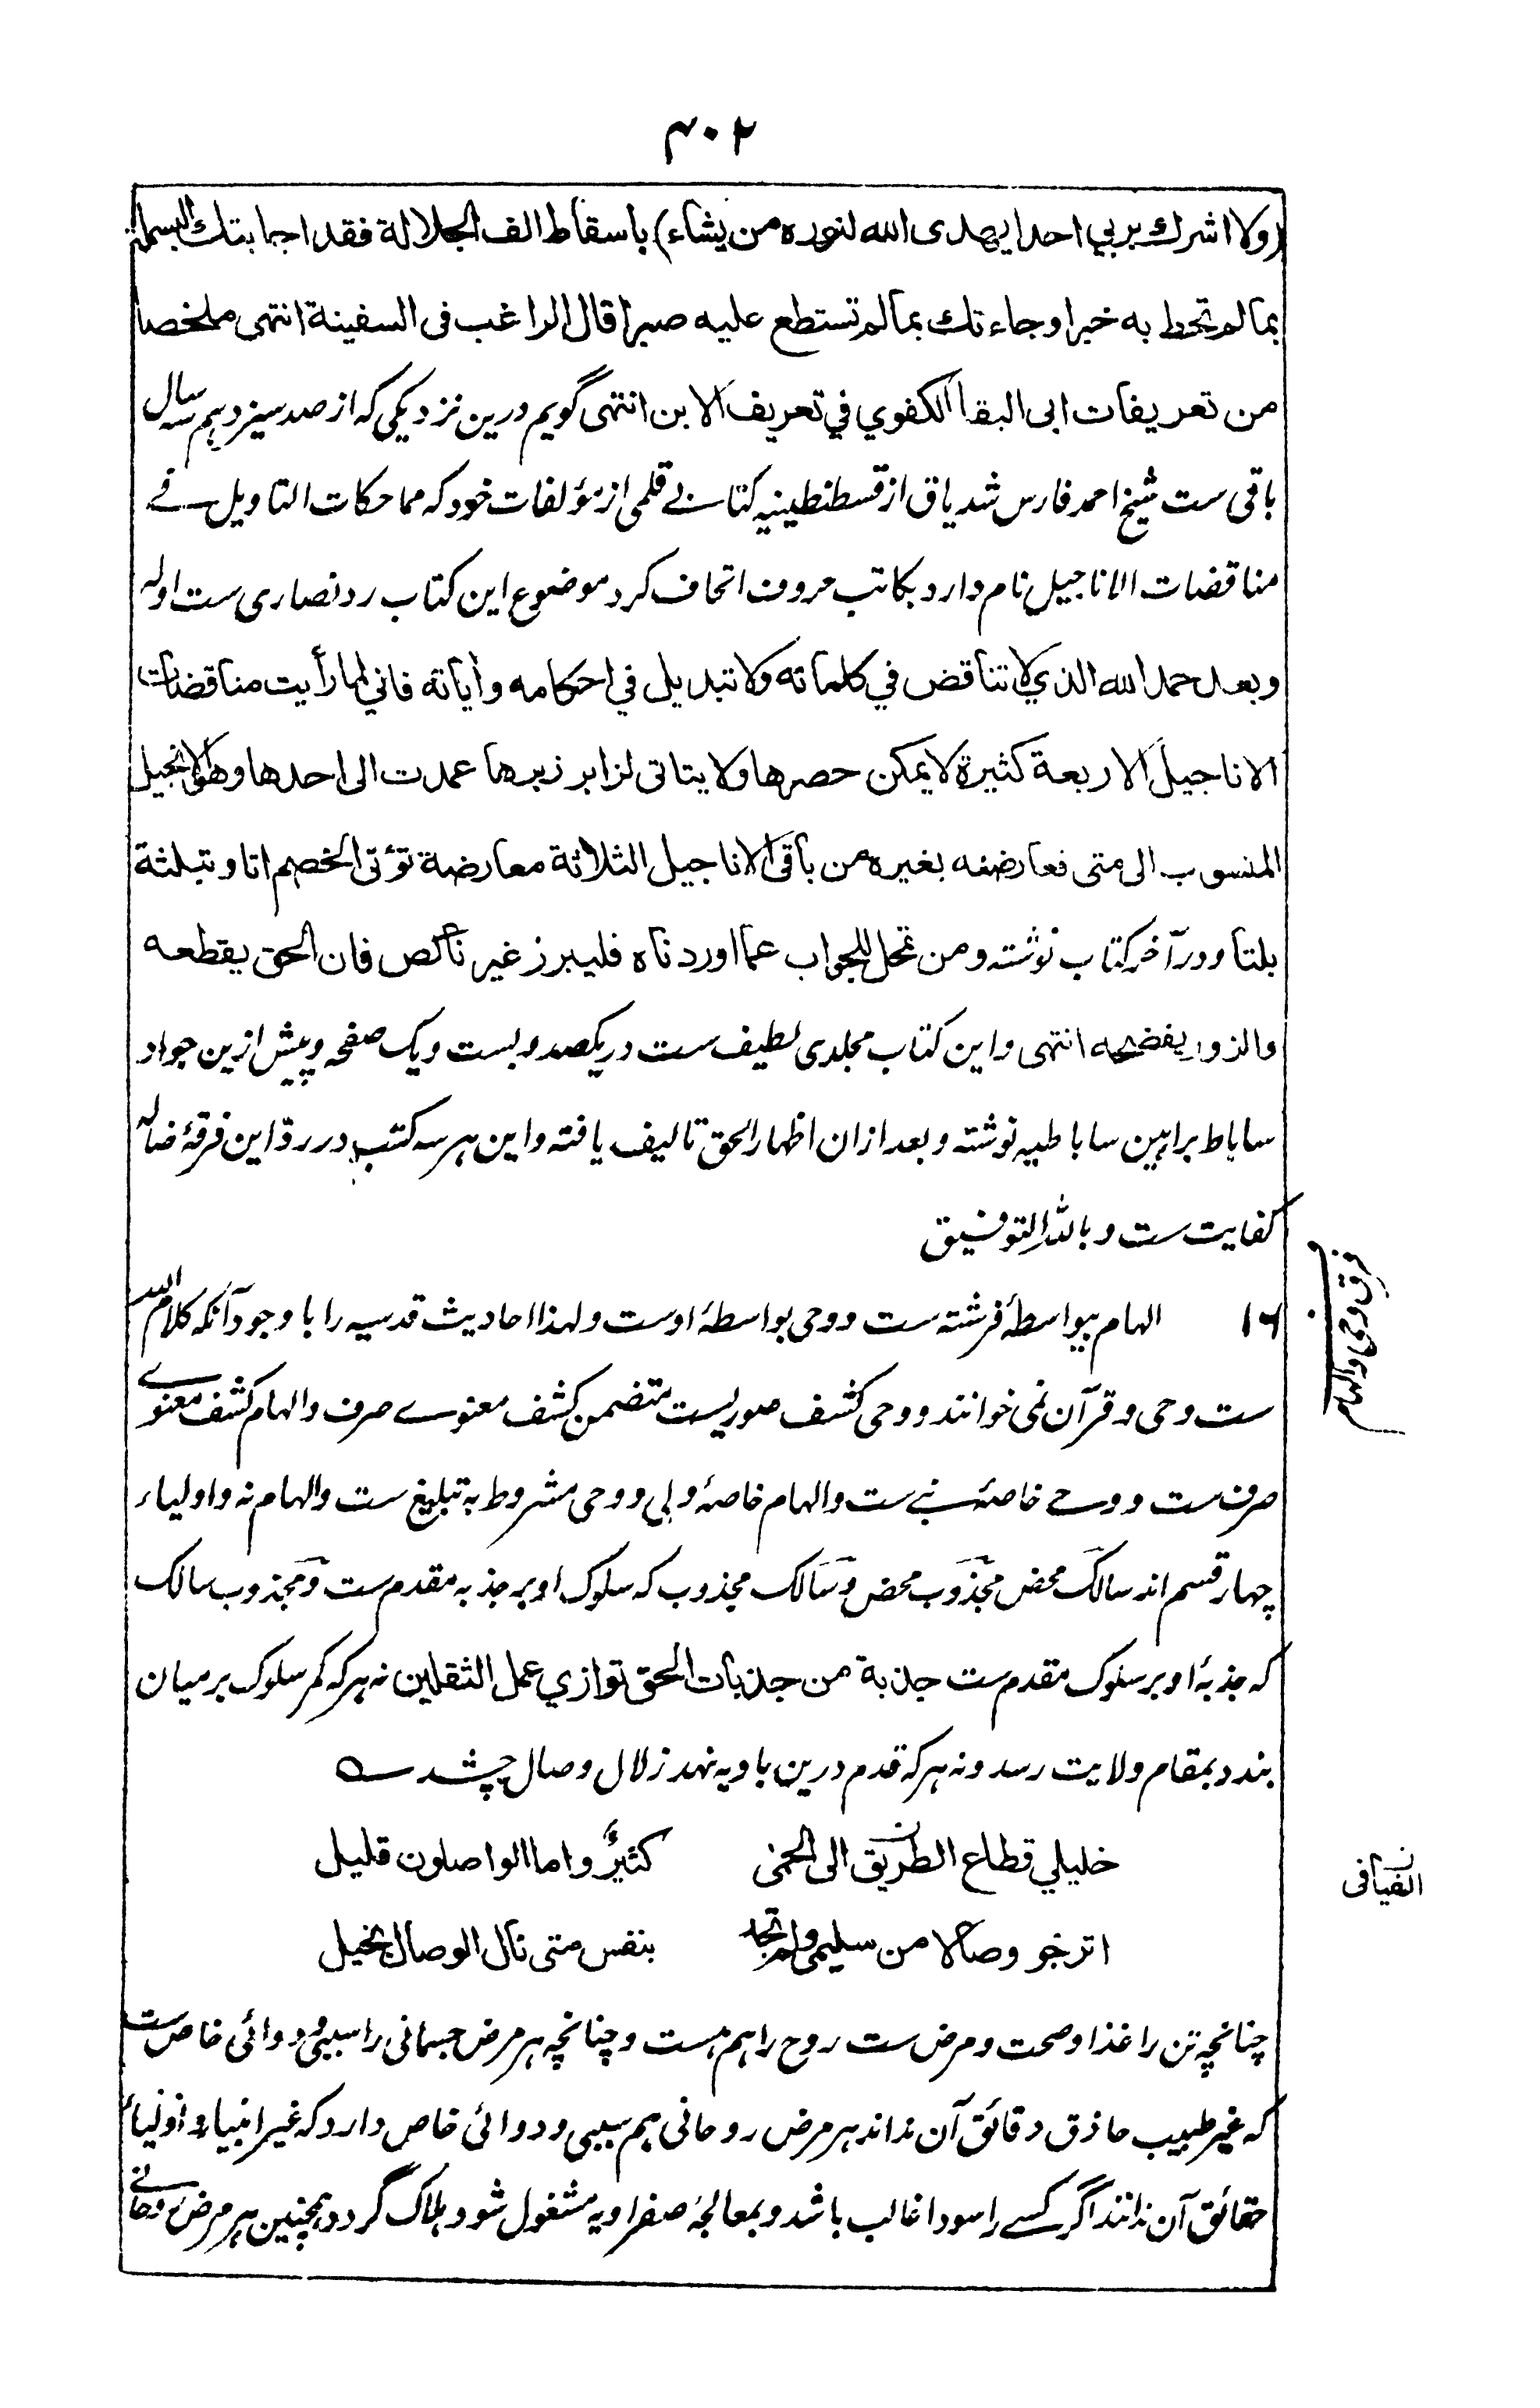 ۴۰۲
(ولا اشرك بربي احدا يهدى الله لنوره من يشاء) باسقاط الف الجلالة فقد اجابتك البسملة
بما لم تحط به خبرا وجاءتك بما لم تستطع عليه صبرا قال الراغب فى السفينة انتهى ملخصا
من تعريفات ابى البقا الكفوي في تعريف الابن انتهى گویم درین نزدیکی که از صد سیزدهم سه سال
باقی ست شیخ احمد فارس شدیاق از قسطنطینیه کتابے قلمی از مؤلفات خود که مماحکات التاویل فے
مناقضات الاناجیل نام دارد بکاتب حروف اتحاف کرد موضوع این کتاب رد نصاری ست اوله
وبعد حمد الله الذي لا تناقض في كلماته ولا تبديل في احكامه وآياته فاني لما رأيت مناقضات
الاناجيل الاربعة كثيرة لا يمكن حصرها ولا يتاتى لزابر زبرها عمدت الى احدها وهو الانجيل
المنسوب الى متى فعارضته بغيره من باقى الاناجيل الثلاثة معارضة تؤتى الخصم اتا وتبلته
بلتا ودر آخر کتاب نوشته ومن تمحل للجواب عما اوردناه فليبرز غير ناكص فان الحق يقطعه
والزور يفضحه انتهى واین کتاب مجلدی لطیف ست در یکصد و بست و یک صفحه و پیش ازین جواد
ساباط براہین ساباطیه نوشته و بعد ازان اظہار الحق تالیف یافته واین ہر سه کتب در ردّ این فرقۂ ضاله
کفایت ست و بالله التوفیق
۱۶ الہام بیواسطۂ فرشته ست و وحی بواسطۂ اوست ولہذا احادیث قدسیه را با وجود آنکه کلام الله
فرق وحی والہام
ست وحی و قرآن نمی خوانند و وحی کشف صوریست متضمن کشف معنوے صرف والہام کشف معنوے
صرف ست ووحے خاصۂ نبے ست والہام خاصۂ ولی و وحی مشروط به تبلیغ ست والہام نه و اولیاء
چہار قسم اند سالک محض مجذوب محض و سالک مجذوب که سلوک او بر جذبه مقدم ست و مجذوب سالک
که جذبۂ او بر سلوک مقدم ست جذبة من جذبات الحق توازي عمل الثقلين نه ہر که کمر سلوک بر میان
بندد بمقام ولایت رسد و نه ہر که قدم درین بادیه نہد زلال وصال چشد ے
خليلي قطاع الطريق الى الحمى كثيرٌ واما الواصلون قليل
الفيافى
اترجو وصالا من سليمى ولم تجد بنفس متى نال الوصال بخيل
چنانچه تن را غذا و صحت و مرض ست روح را ہم ہست و چنانچه ہر مرض جسمانی را سببی و دوائی خاص ست
که غیر طبیب حاذق دقائق آن نداند ہر مرض روحانی ہم سببی و دوائی خاص دارد که غیر انبیاء و اولیاء
حقائق آن ندانند اگر کسے را سودا غالب باشد و بمعالجۂ صفرا ویه مشغول شود ہلاک گردد ہمچنین ہر مرض روحانے